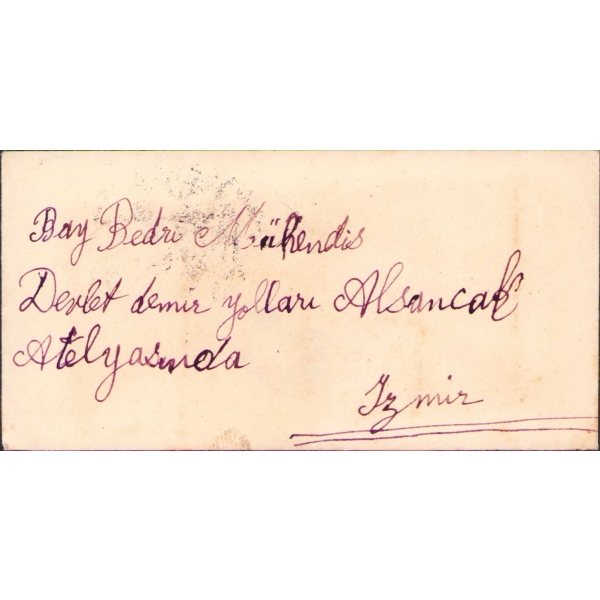 Bay Bedri Mühendis
Devlet demir yolları Alsancak
Atelyasında
Izmir